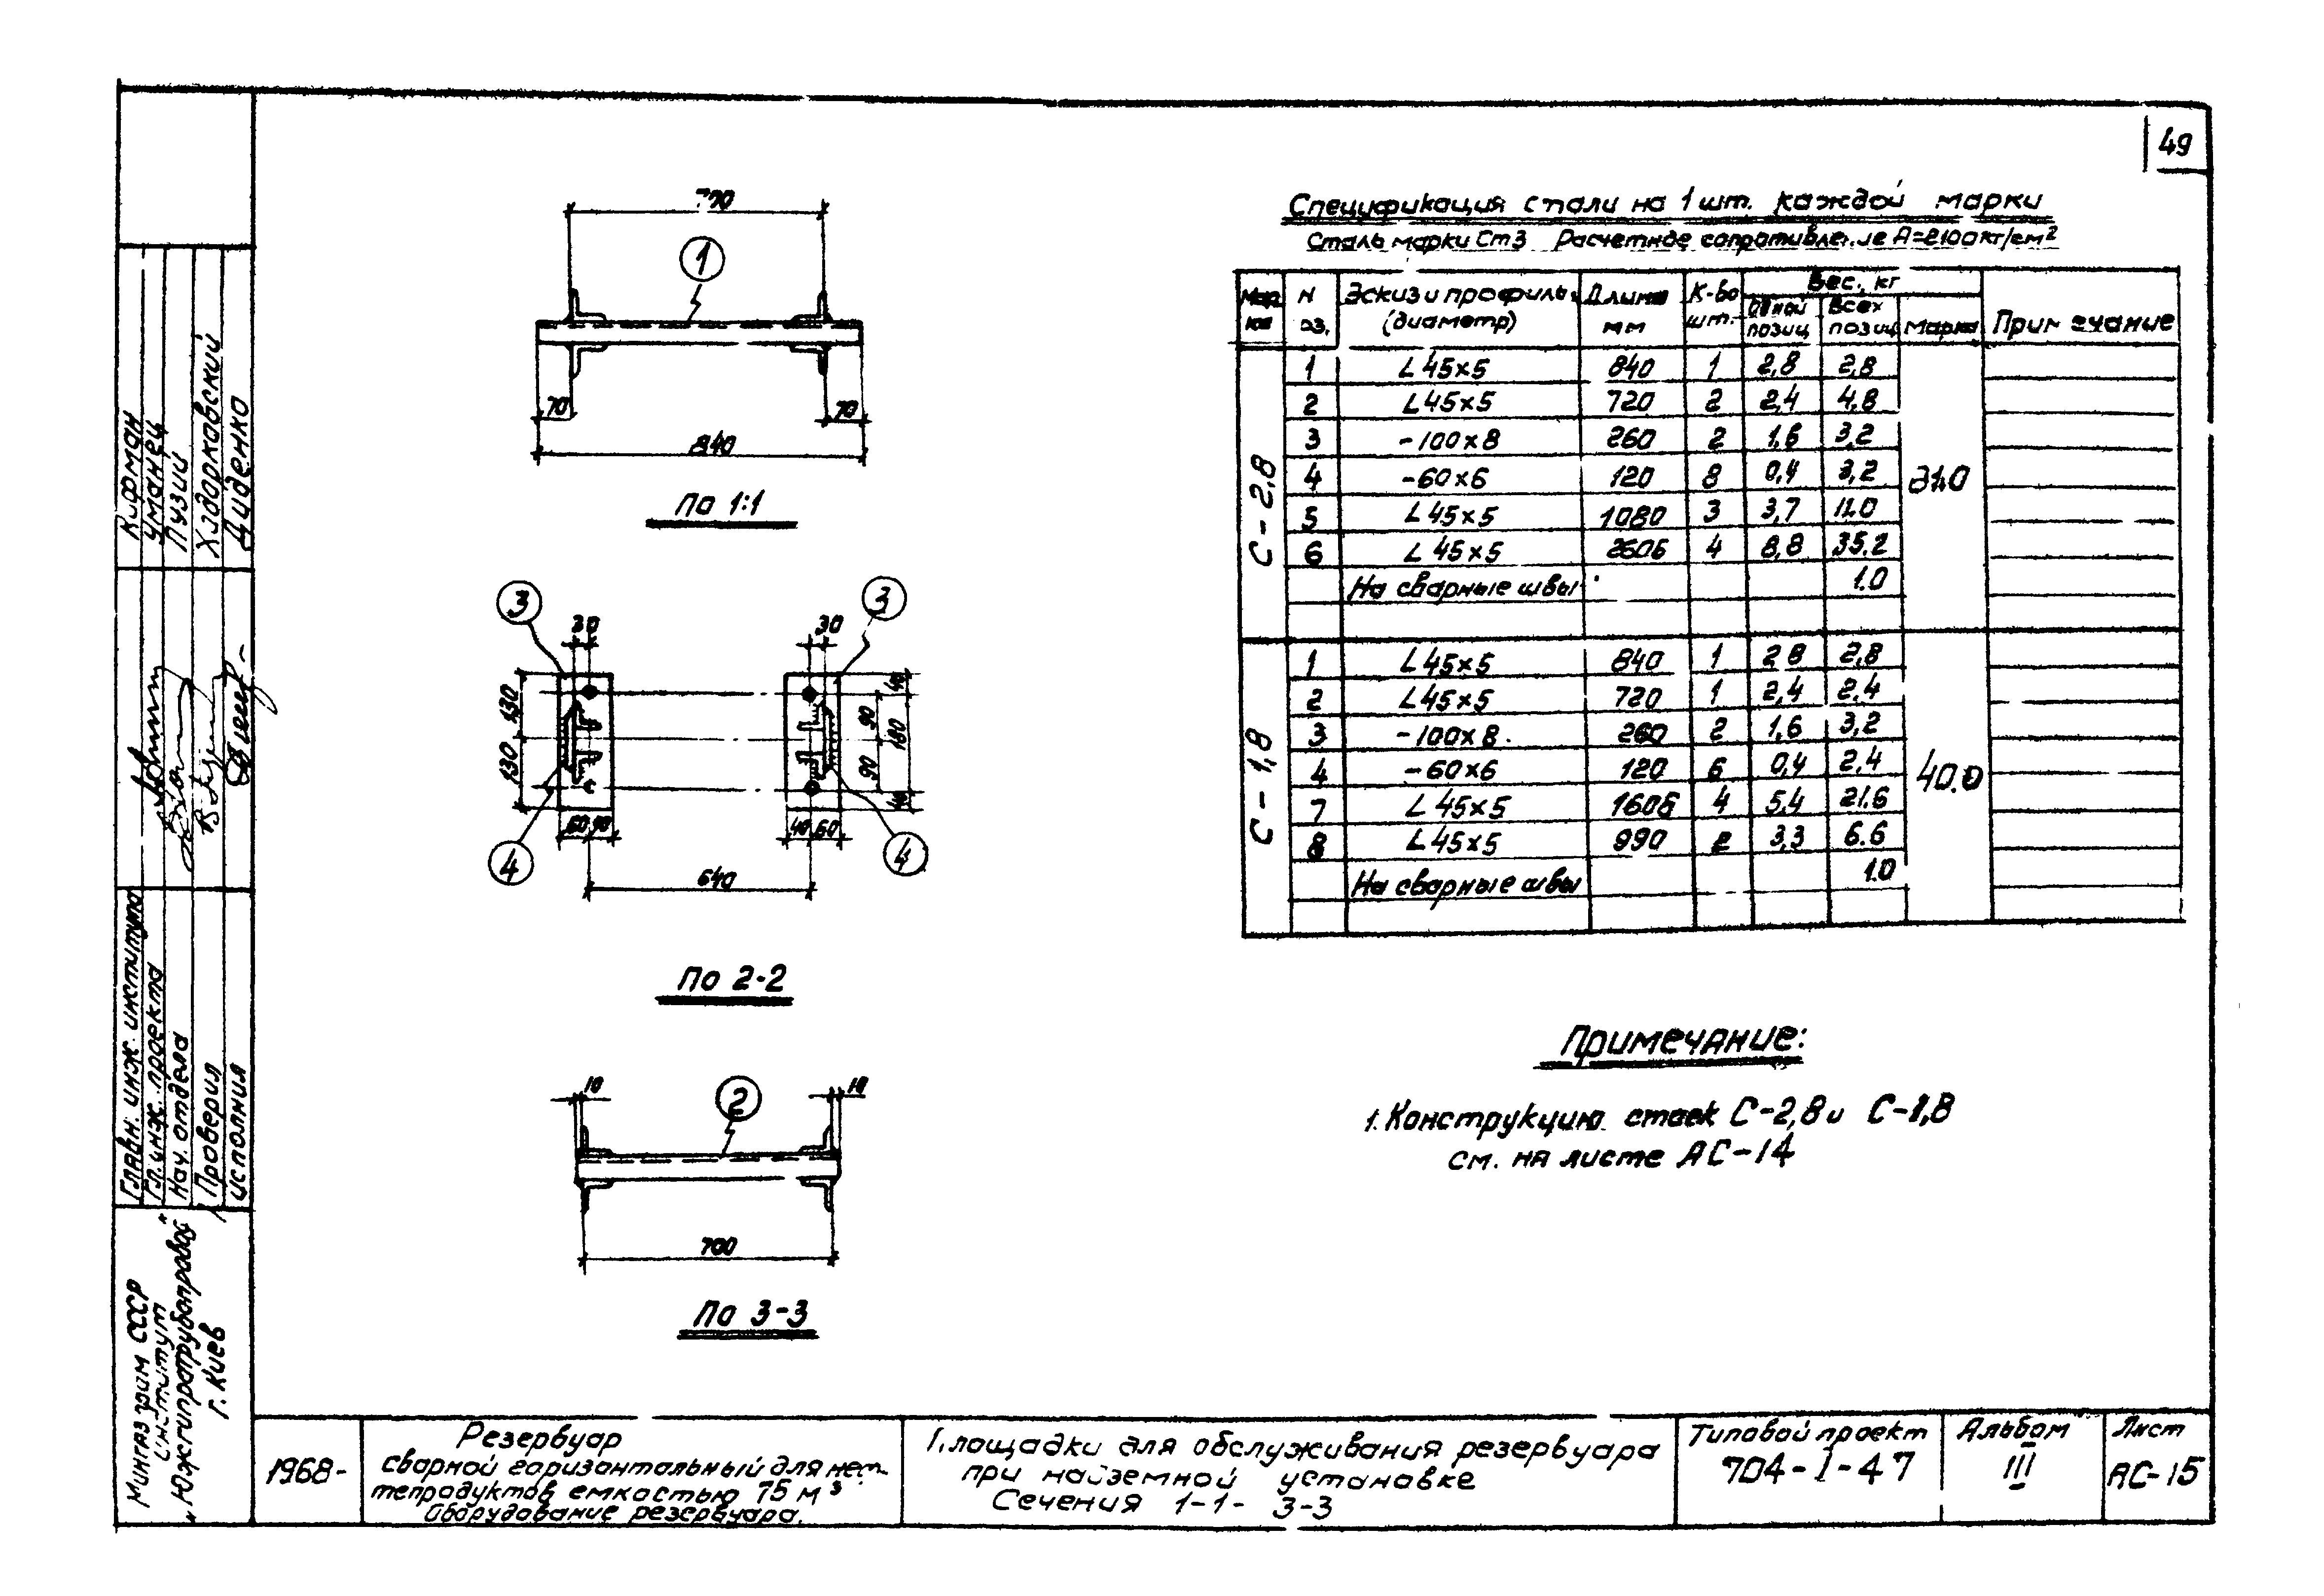 49
Спецификация стали на 1 шт. каждой марки
Сталь марки Ст3 Расчетное
Мар ка N оз. Эскиз и профиль (диаметр) Длина мм К-во шт. Вес, кг Одной позиц Всех позиц Марка Примечание
С-2,8
1 L 45×5 840 1 2,8 2,8
2 L 45×5 720 2 2,4 4,8
3 -100×8 260 2 1,6 3,2
4 -60×6 120 8 0,4 3,2
5 L 45×5 1080 3 3,7 11.0
6 L 45×5 2606 4 8,8 35.2
На сварные швы 1.0
С-1,8
1 L 45×5 840 1 2 8 2,8
2 L 45×5 720 1 2,4 2.4
3 -100×8 260 2 1,6 3,2
4 -60×6 120 6 0,4 2,4 40.0
7 L 45×5 1606 4 5.4 21.6
8 L 45×5 990 2 3,3 6.6
На сварные швы 1.0
1
70 70
840
По 1:1
3 3
30 30
130 130
40 90 180 90 40
60 40 40 60
4 4
640
По 2-2
10 2 10
700
По 3-3
Примечание:
1. Конструкцию стоек С-2,8 и С-1,8
см. на листе АС-14
Кифман
Уманец
Пузий
Ходорковский
Диденко
Главн. инж. института
Гл. инж. проекта
Нач. отдела
Проверил
Исполнил
Мингазпром СССР
институт
г. Киев
1968-
Резервуар
сварной горизонтальный для неф-
тепродуктов емкостью 75 м³
Оборудование резервуара.
Площадки для обслуживания резервуара
при наземной установке
Сечения 1-1- 3-3
Типовой проект
704-1-47
Альбом
III
Лист
АС-15